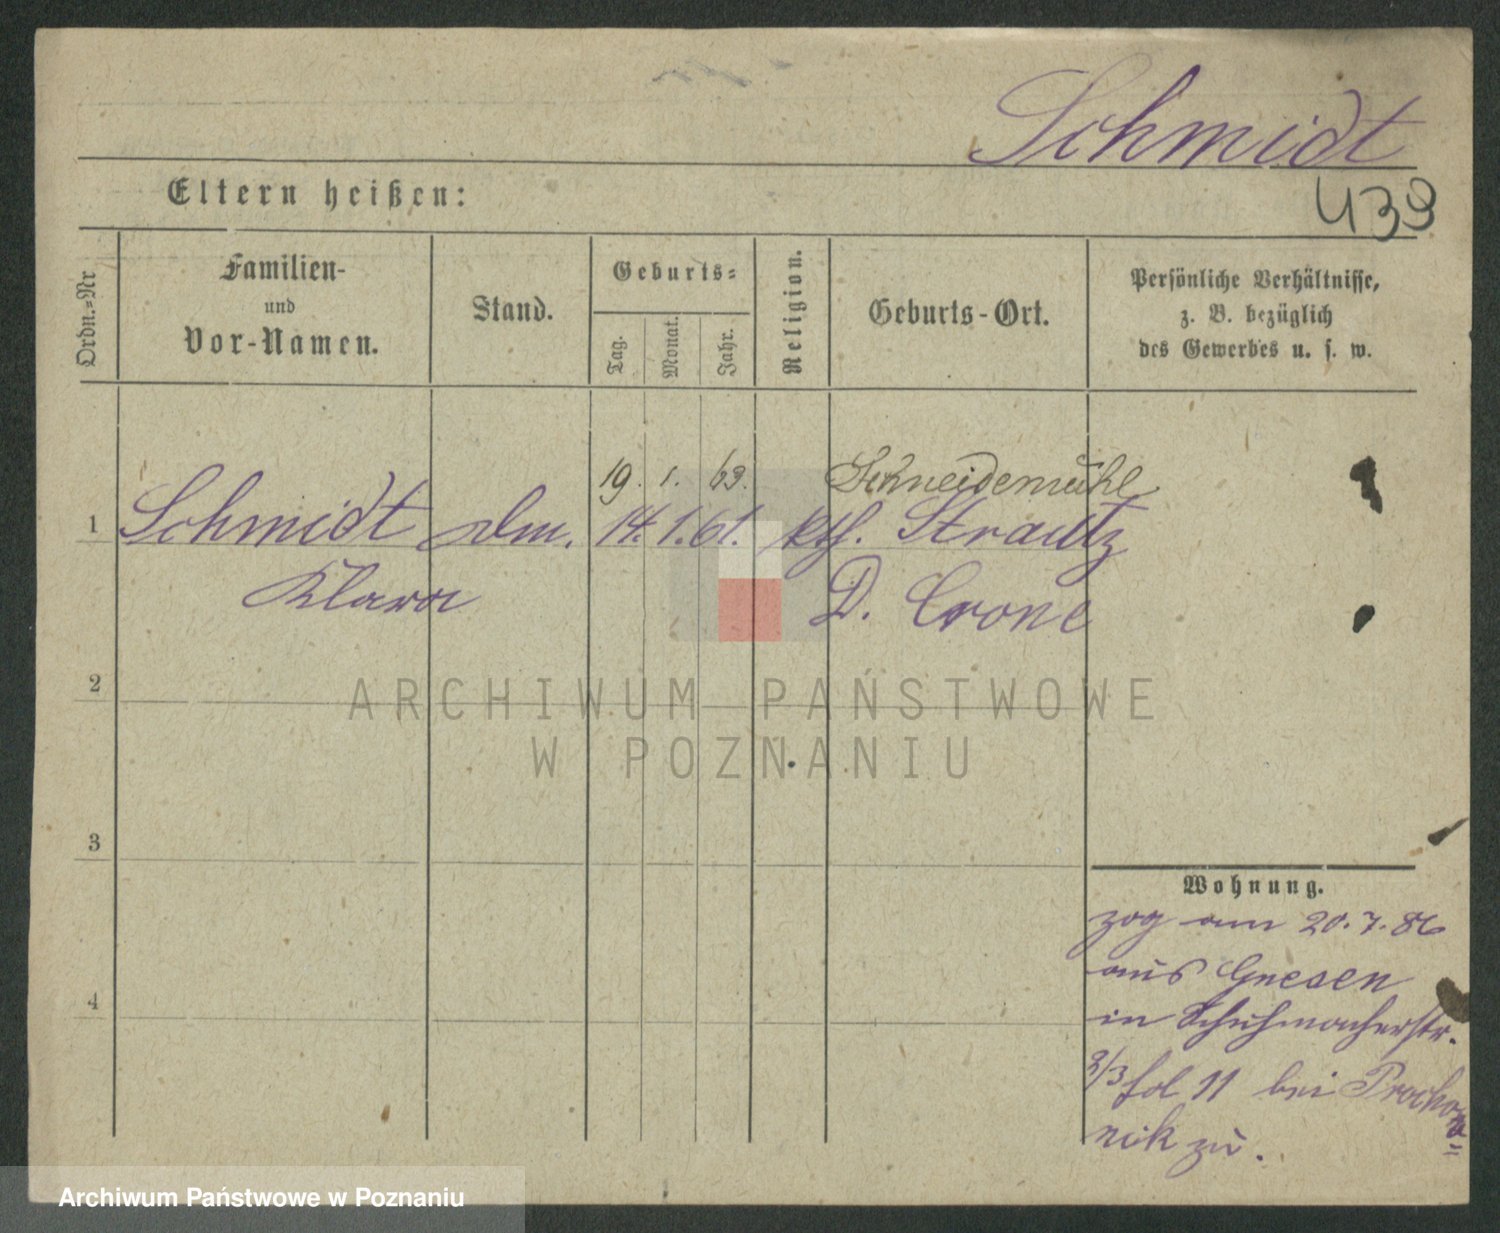 Schmidt
Eltern heißen:
439
Ordn.=Nr
Familien-
und
Vor-Namen.
Stand.
Geburts=
Tag.
Monat.
Jahr.
Religion.
Geburts-Ort.
Persönliche Verhältnisse,
z. B. bezüglich
des Gewerbes u. s. w.
19. 1. 63. Schneidemühl
1 Schmidt Dm. 14. 1. 61. kth. Strautz
Klara D. Crone
2
ARCHIWUM PAŃSTWOWE
W POZNANIU
3
Wohnung.
zog am 20. 7. 86
aus Gnesen
4
in Schuhmacherstr.
2/3 fol 11 bei Prochow=
nik zu.
Archiwum Państwowe w Poznaniu